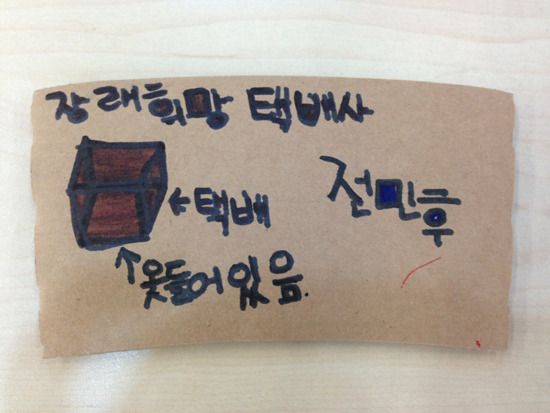 장래희망 택배사
←택배
전민후
↑옷들어있음.